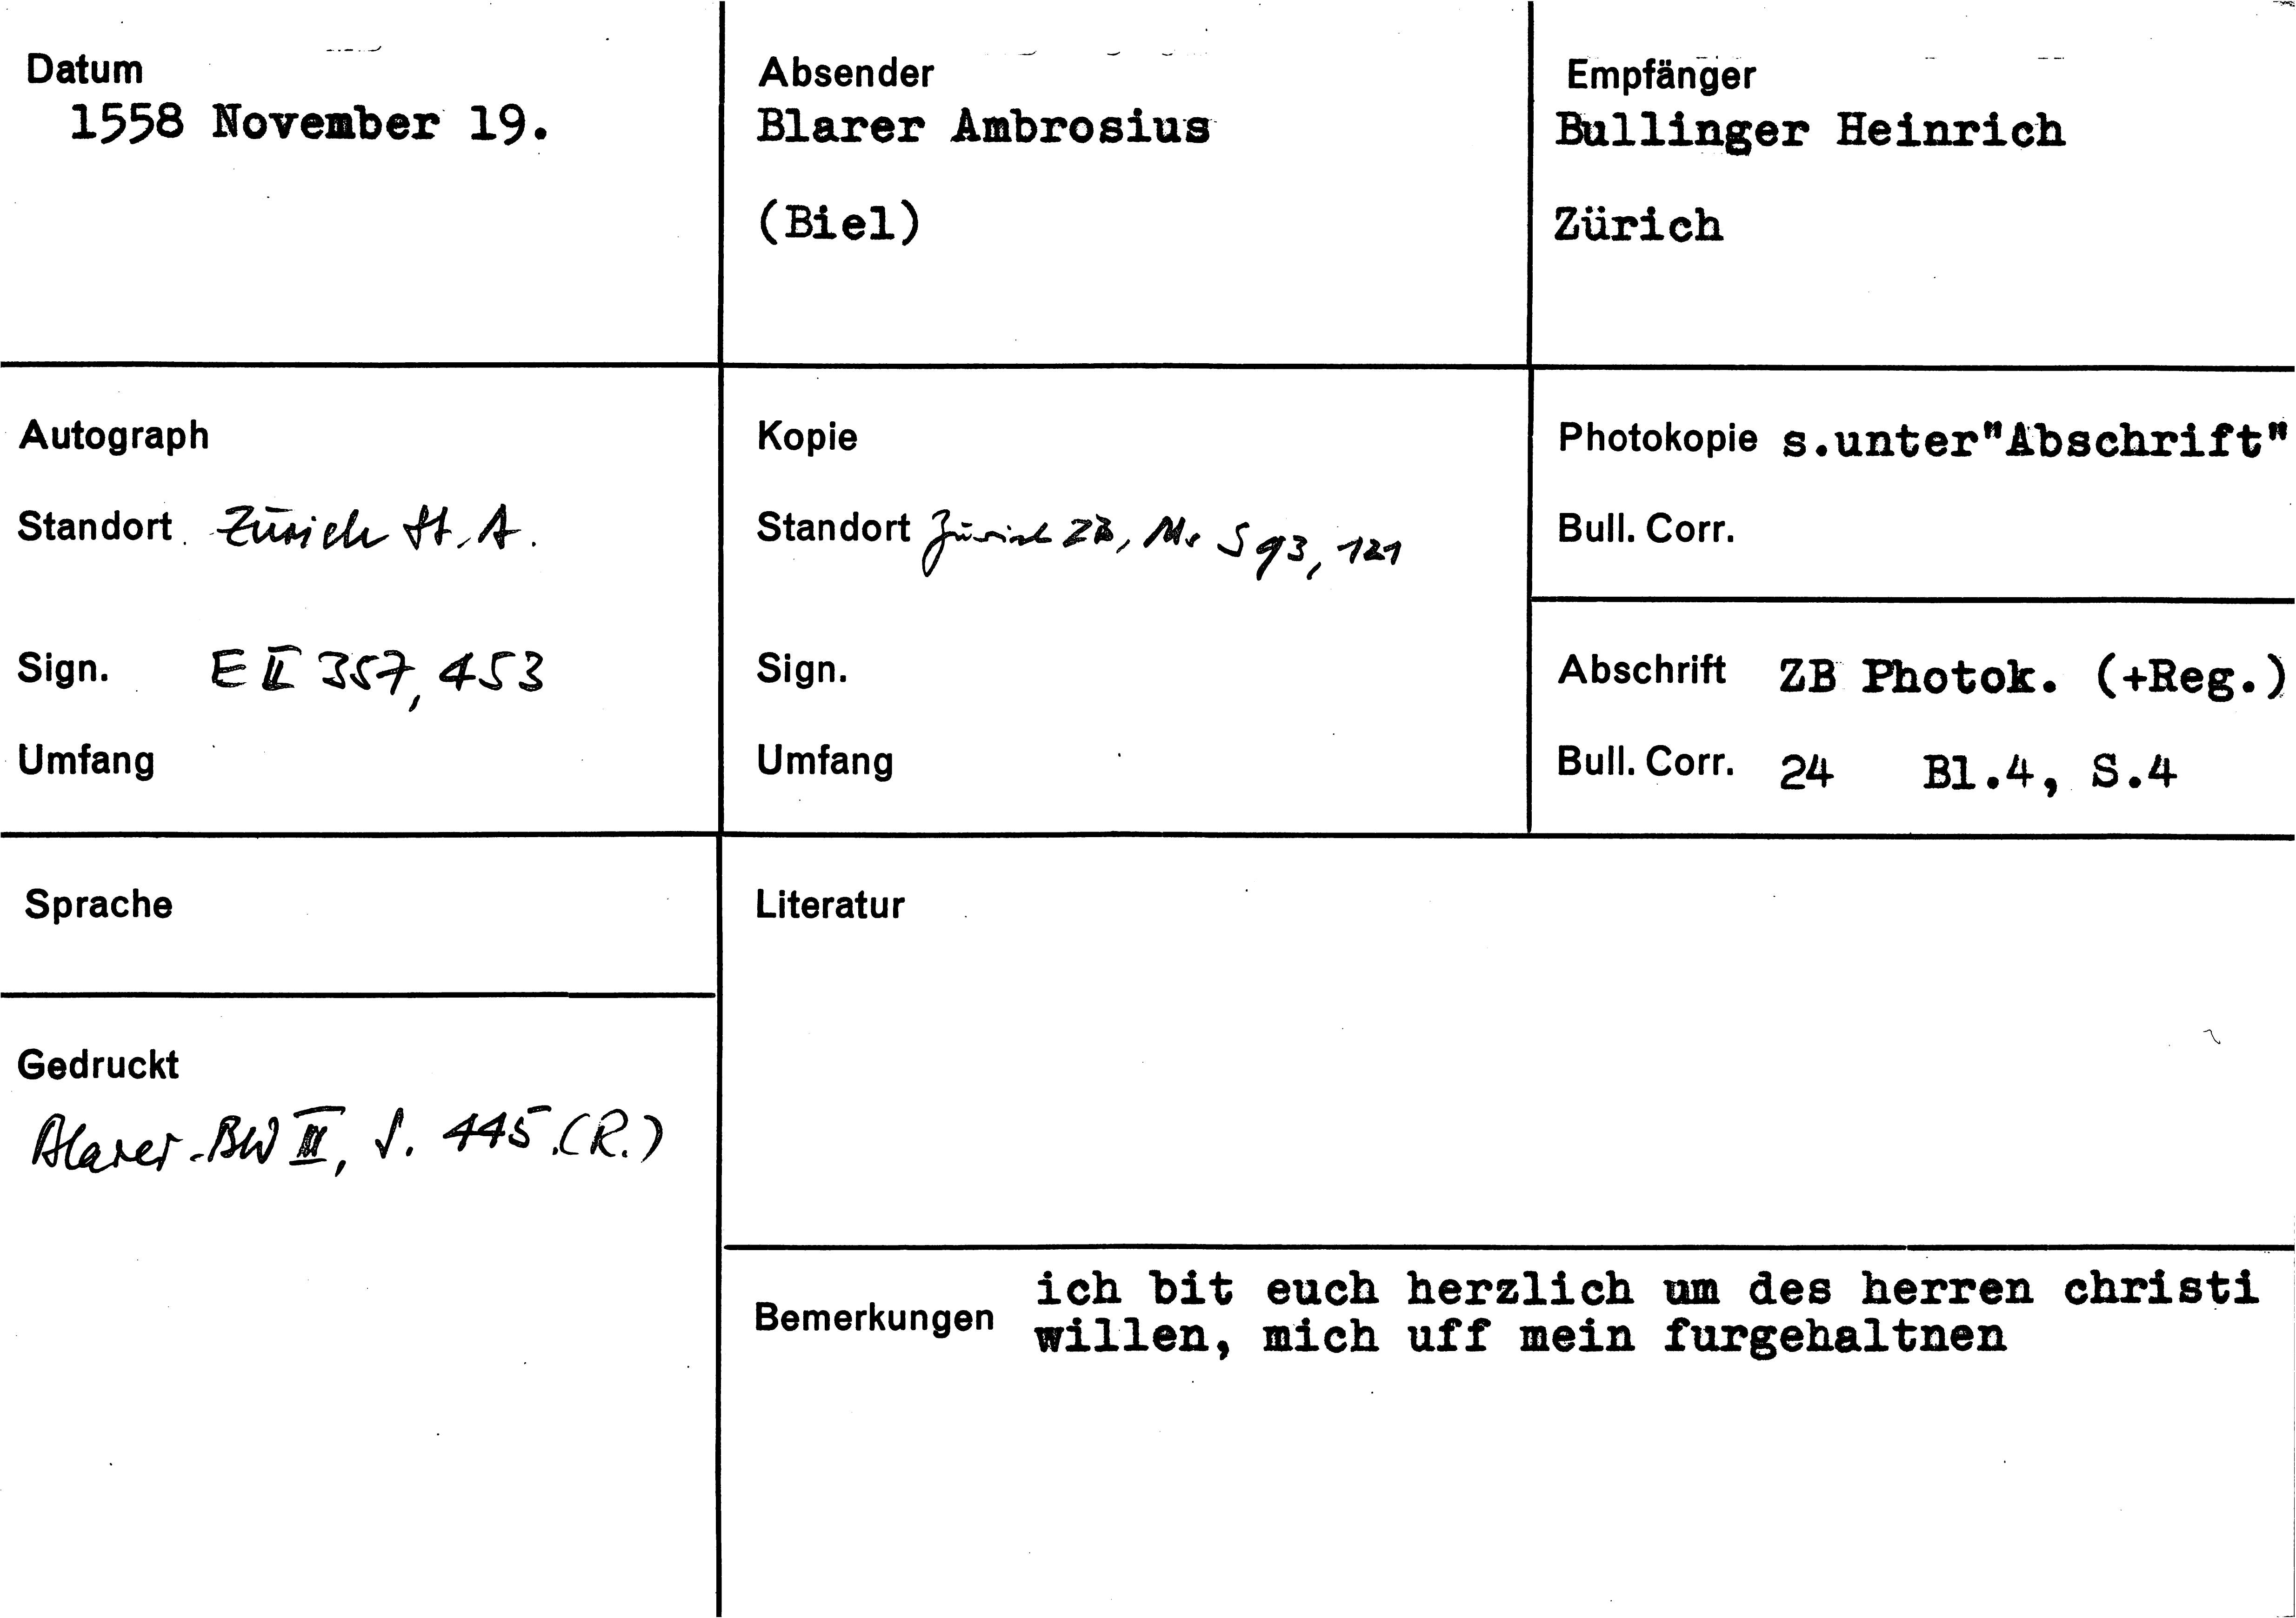 Datum
1558 November 19.
Absender
Blarer Ambrosius
(Biel)
Empfänger
Bullinger Heinrich
Zürich
Autograph
Standort Zürich St. A.
Sign. E II 357, 453
Umfang
Kopie
Standort Zürich ZB, Ms S 93, 121
Sign.
Umfang
Photokopie s.unter"Abschrift"
Bull. Corr.
Abschrift ZB Photok. (+Reg.)
Bull. Corr. 24 Bl.4, S.4
Sprache
Gedruckt
Blarer-BW III, S. 445.(R.)
Literatur
Bemerkungen
ich bit euch herzlich um des herren christi
willen, mich uff mein furgehaltnen